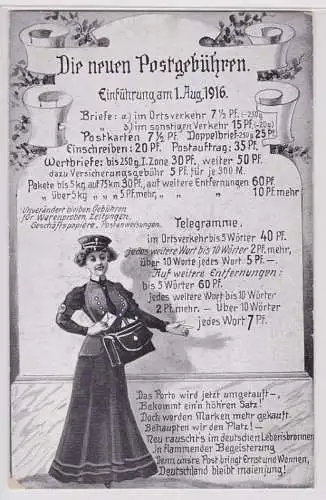 Die neuen Postgebühren.
Einführung am 1. Aug. 1916.
Briefe: a) im Ortsverkehr 7 ½ Pf. (-250g
b) im sonstigen Verkehr 15 Pf. (-20g)
Postkarten 7 ½ Pf. Doppelbrief-250g 25 Pf.
Einschreiben: 20 Pf. Postauftrag: 35 Pf.
Wertbriefe: bis 250g I. Zone 30 Pf., weiter 50 Pf.
dazu Versicherungsgebühr 5 Pf. für je 300 M.
Pakete bis 5kg auf 75km 30 Pf., auf weitere Entfernungen 60 Pf.
„ über 5kg „ „ 5 Pf. mehr, „ „ „ 10 Pf. mehr
Unverändert bleiben Gebühren
für Warenproben, Zeitungen,
Geschäftspapiere, Postanweisungen.
Telegramme,
im Ortsverkehr bis 5 Wörter 40 Pf.
jedes weitere Wort bis 10 Wörter 2 Pf. mehr,
über 10 Worte jedes Wort 5 Pf. –.
Auf weitere Entfernungen:
bis 5 Wörter 60 Pf.
jedes weitere Wort bis 10 Wörter
2 Pf. mehr. – Über 10 Wörter
jedes Wort 7 Pf.
Das Porto wird jetzt umgetauft –,
Bekommt ein'n höhren Satz!
Doch werden Marken mehr gekauft.
Behaupten wir den Platz! –
Neu rauscht's im deutschen Lebensbronnen
In flammender Begeisterung
Denn unsre Post bringt Ernst und Wonnen,
Deutschland bleibt maienjung!